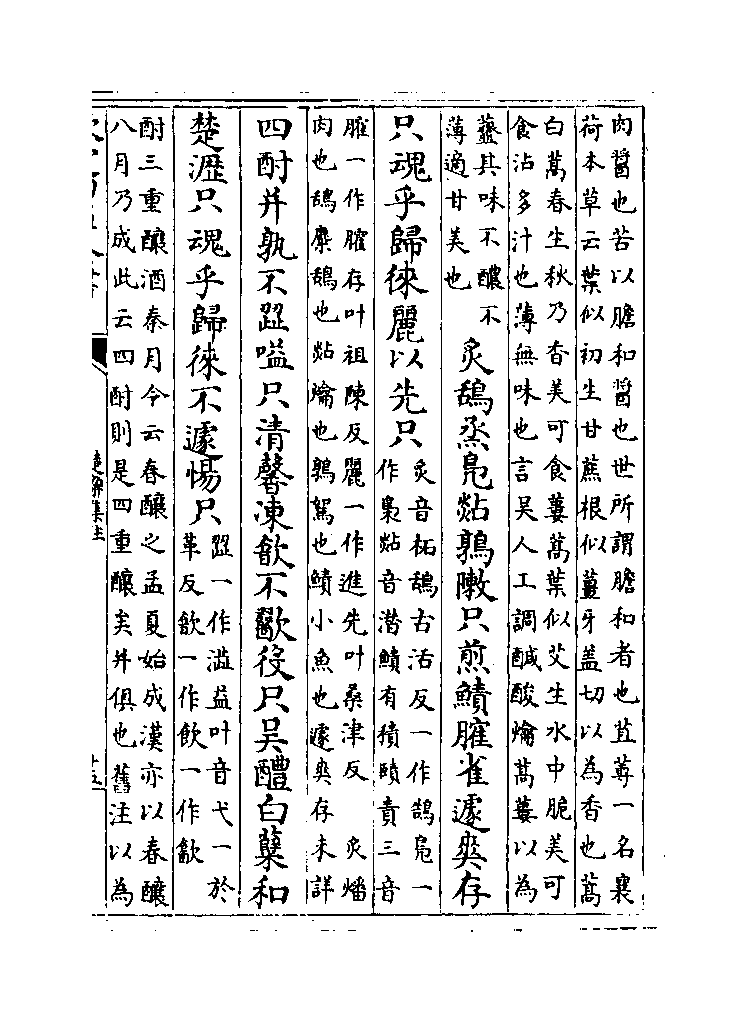 肉醤也苦以膽和醤也世所謂膽和者也苴蓴一名蘘
荷本草云葉似初生甘蕉根似薑牙蓋切以為香也蒿
白蒿春生秋乃香美可食蔞蒿葉似艾生水中脆美可
食沾多汁也薄無味也言吳人工調鹹酸爚蒿蔞以為
虀其味不醲不
薄適甘美也
炙鴰烝鳧煔鶉敶只煎鰿臛雀遽爽存
只魂乎歸徠麗以先只
炙音柘鴰古活反一作鵠鳧一
作梟煔音潛鰿有積賾責三音
臛一作臛存叶祖陳反麗一作進先叶桑津反　炙燔
肉也鴰麋鴰也煔爚也鶉駕也鰿小魚也遽爽存未詳
四酎并孰不歰嗌只清馨凍飮不歠役只吳醴白糵和
楚瀝只魂乎歸徠不遽惕只
歰一作澁嗌叶音弋一於
革反飮一作飲一作㱃
酎三重釀酒秦月令云春釀之孟夏始成漢亦以春釀
八月乃成此云四酎則是四重釀矣并俱也舊注以為
楚辭集注
十五